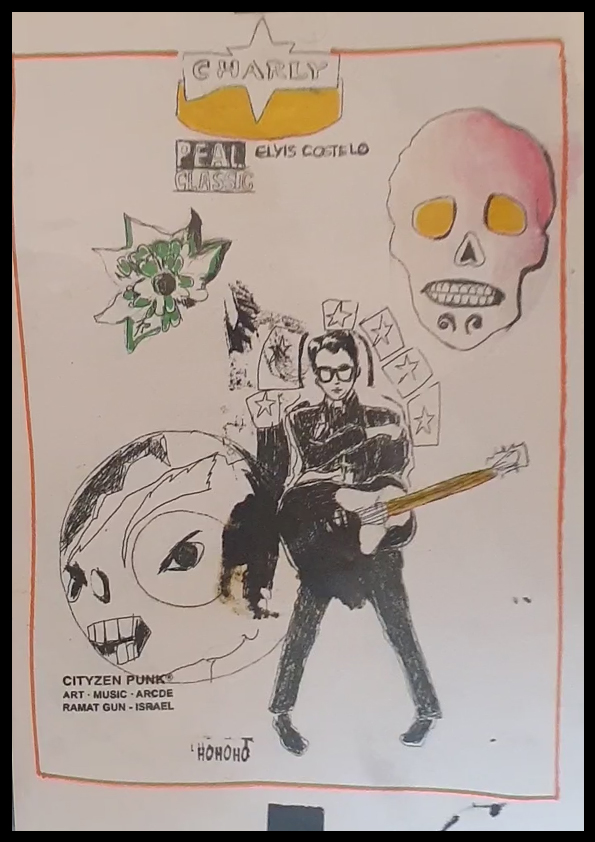 CHARLY
PEAL ELVIS COSTELO
CLASSIC
CITYZEN PUNK®
ART · MUSIC · ARCDE
RAMAT GUN - ISRAEL
HOHOHO